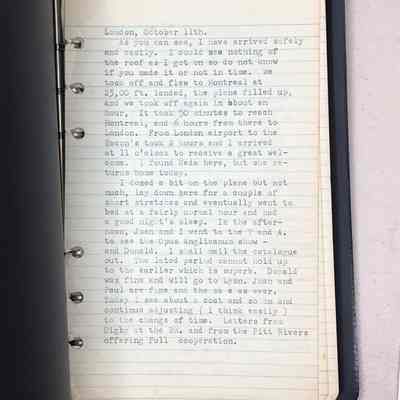 London, October 11th.
As you can see, I have arrived safely
and easily. I could see nothing of
the roof as I got on so do not know
if you made it or not in time. We
took off and flew to Montreal at
23,00 ft. landed, the plane filled up,
and we took off again in about an
hour. It took 50 minutes to reach
Montreal, and 6 hours from there to
London. From London airport to the
2 hours and I arrived
at 11 o'clock to receive a great wel-
come. I found here, but she re-
turns home today.
I dozed a bit on the plane but not
much, lay down here for a couple of
short stretches and eventually went to
bed at a fairly normal hour and had
a good night's sleep. In the after-
noon, Joan and I went to the V and A.
to see the Opus Anglicanum show -
and Donald. I shall mail the catalogue
out. The later period cannot hold up
to the earlier which is superb. Donald
was fine and will go to Lyon. Joan and
Paul are fine and the same as ever.
Today I see about a coat and so on and
continue adjusting ( I think easily )
to the change of time. Letters from
Digby at the BM. and from the Pitt Rivers
offering full cooperation.